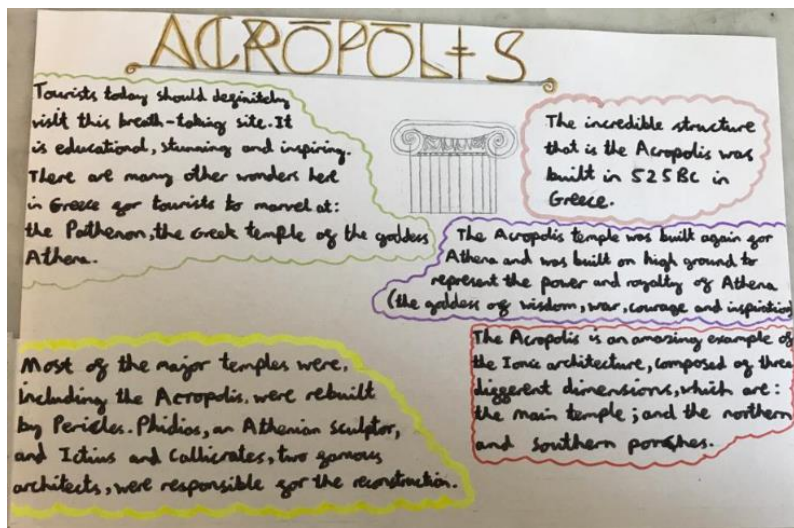 ACROPOLIS
Tourists today should definitely
visit this breath-taking site. It
is educational, stunning and inspiring.
There are many other wonders here
in Greece for tourists to marvel at:
the Pathenon, the Greek temple of the goddess
Athena.
The incredible structure
that is the Acropolis was
built in 525BC in
Greece.
The Acropolis temple was built again for
Athena and was built on high ground to
represent the power and royalty of Athena
(the goddess of wisdom, war, courage and inspiration)
Most of the major temples were,
including the Acropolis, were rebuilt
by Pericles. Phidias, an Athenian sculptor,
and Ictius and Callicrates, two famous
architects, were responsible for the reconstruction.
The Acropolis is an amazing example of
the Ionic architecture, composed of three
different dimensions, which are:
the main temple; and the northern
and southern porches.